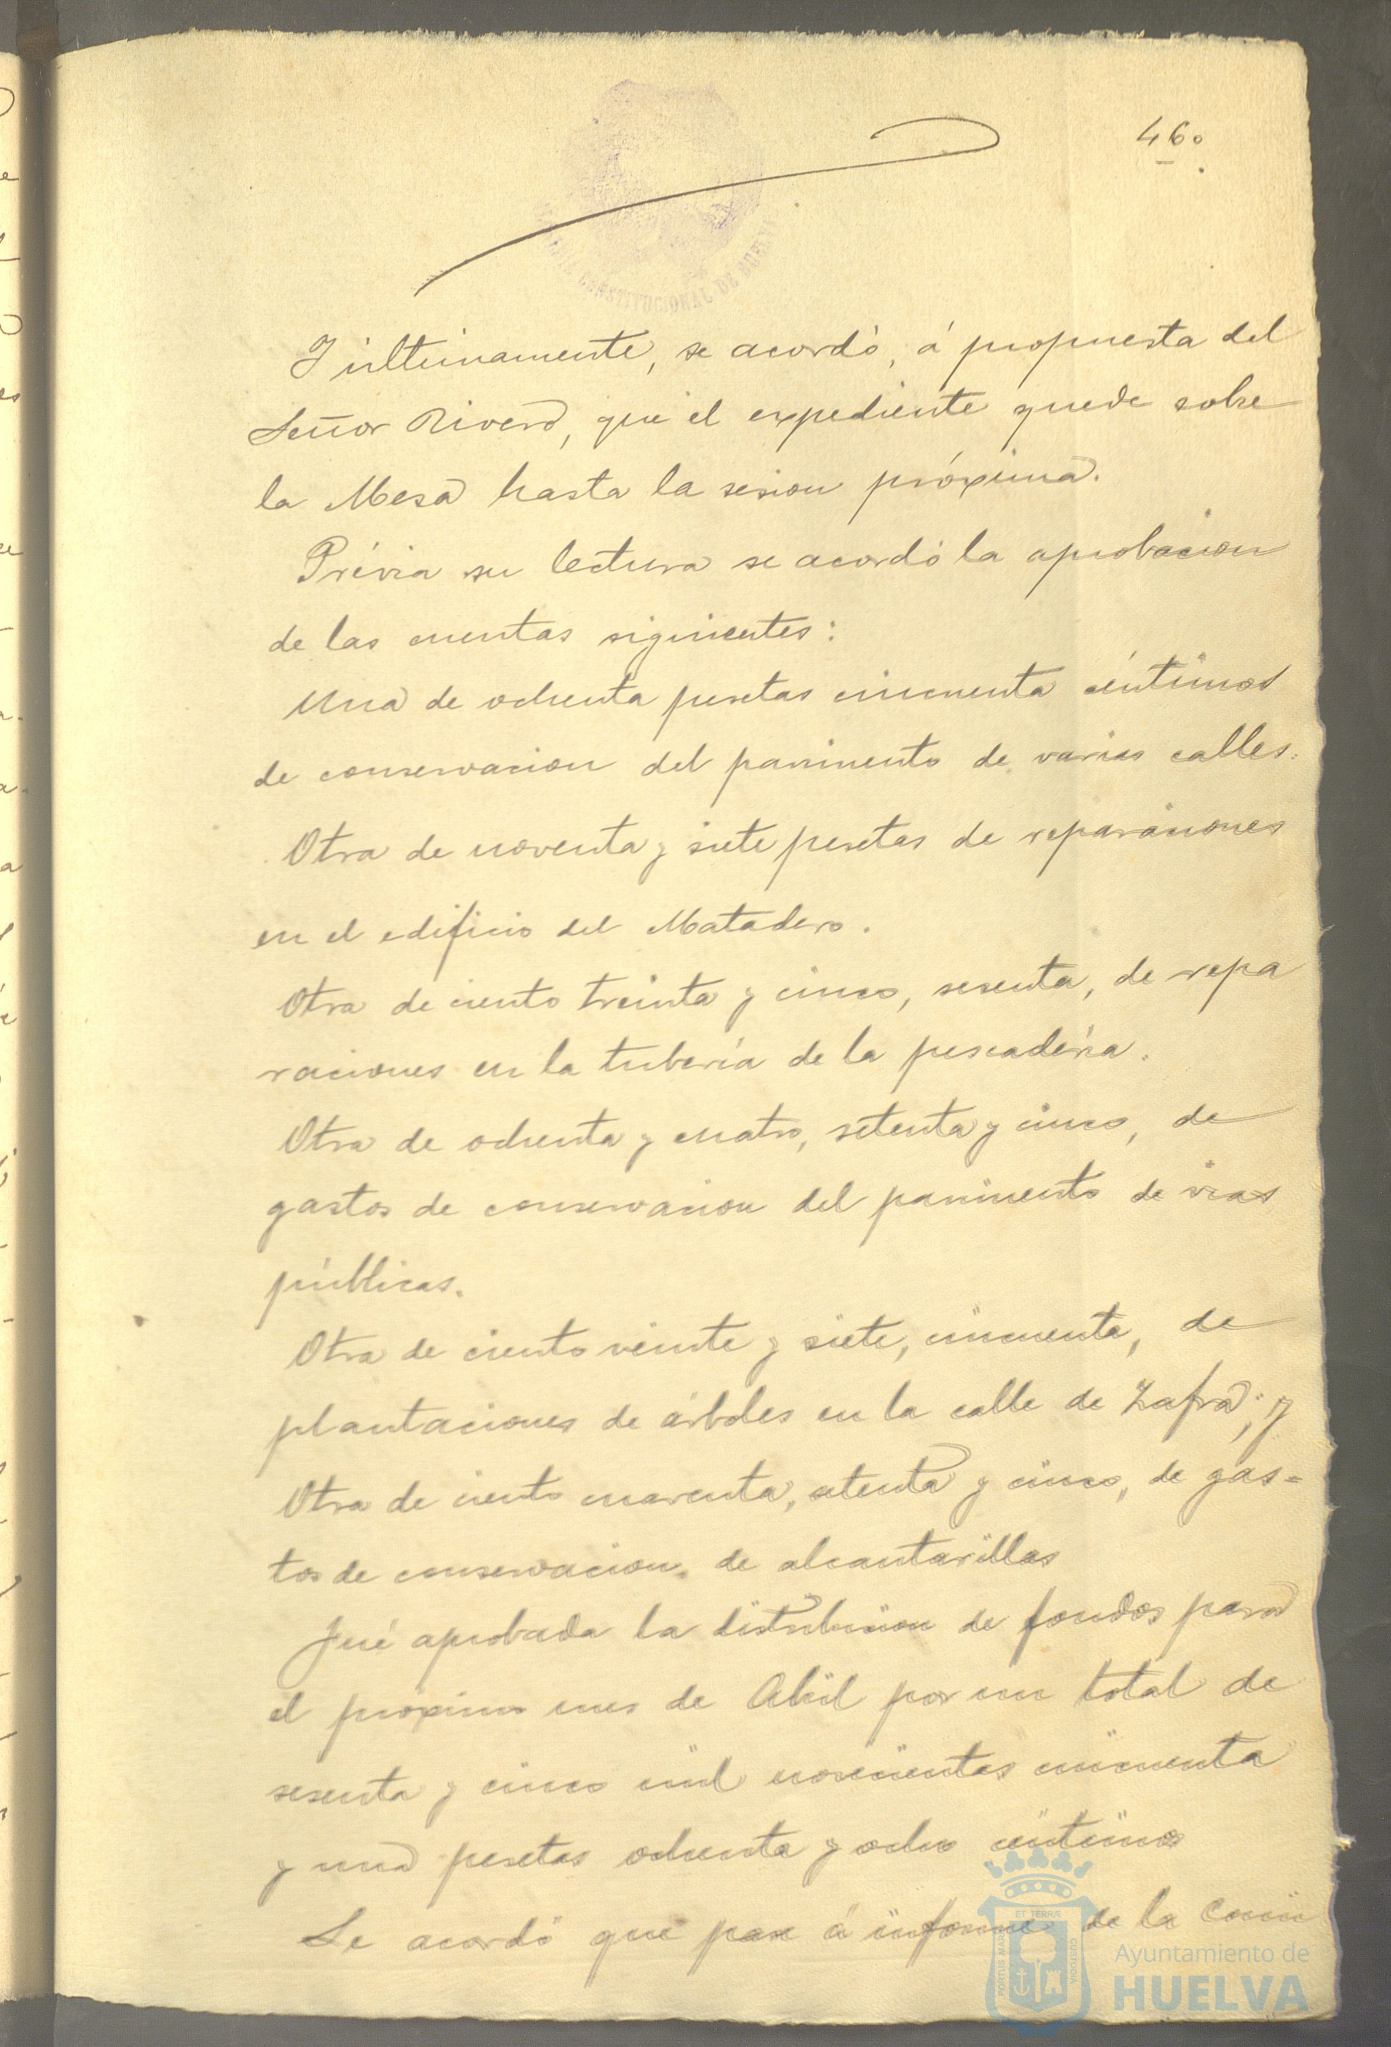 46.
CONSTITUCIONAL DE HUELVA
Y ultimamente, se acordó, á propuesta del
Señor Rivero, que el expediente quede sobre
la Mesa hasta la sesion próxima.
Prévia su lectura se acordó la aprobacion
de las cuentas siguientes:
Una de ochenta pesetas cincuenta céntimos
de conservacion del pavimento de varias calles.
Otra de noventa y siete pesetas de reparaciones
en el edificio del Matadero.
Otra de ciento treinta y cinco, sesenta, de repa
raciones en la tubería de la pescadería.
Otra de ochenta y cuatro, setenta y cinco, de
gastos de conservacion del pavimento de vias
públicas.
Otra de ciento veinte y siete, cincuenta, de
plantaciones de árboles en la calle de Zafra; y
Otra de ciento cuarenta, setenta y cinco, de gas-
tos de conservacion de alcantarillas
Fué aprobada la distribucion de fondos para
el próximo mes de Abril por un total de
sesenta y cinco mil novecientas cincuenta
y una pesetas ochenta y ocho céntimos
Se acordó que pase á informe de la Comi
ET TERRÆ
PORTUS MARIS
CUSTODIA
Ayuntamiento de
HUELVA